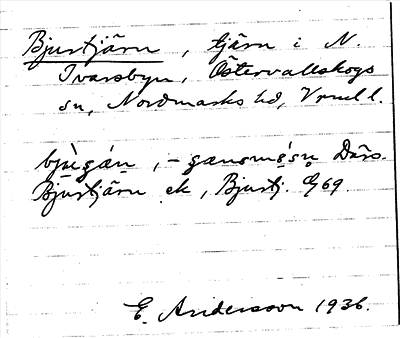 Bjurtjärn, tjärn i N.
Ivarsbyn, Östervallskogs
sn, Nordmarks hd, Vrml l.
Dårs.
Bjurtjärn ek, Bjurtj. G 69
E. Andersson 1936.